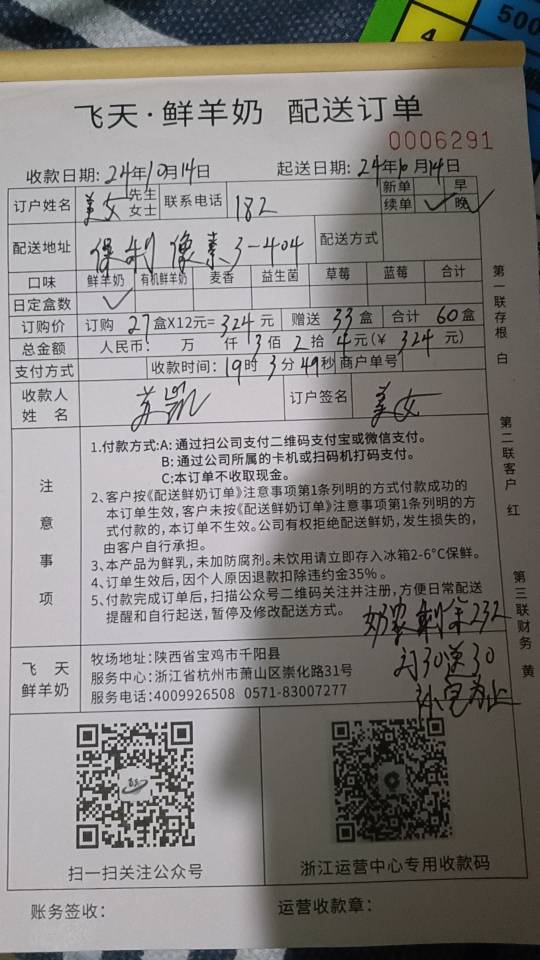 500
4
飞天·鲜羊奶 配送订单
0006291
收款日期: 24年10月14日 起送日期: 24年10月14日
订户姓名 美女 先生 女士 联系电话 182 新单 早
续单 ✓ 晚 ✓
配送地址 保利像素3-404 配送方式
口味 鲜羊奶 有机鲜羊奶 麦香 益生菌 草莓 蓝莓 合计
日定盒数 ✓
订购价 订购 27 盒X12元= 324 元 赠送 33 盒 合计 60 盒
总金额 人民币: 万 仟 3 佰 2 拾 4 元(¥ 324 元)
支付方式 收款时间: 19 时 3 分 49 秒 商户单号
收款人姓名 苏凯 订户签名 美女
注意事项
1.付款方式:A: 通过扫公司支付二维码支付宝或微信支付。
B: 通过公司所属的卡机或扫码机打码支付。
C:本订单不收取现金。
2、客户按《配送鲜奶订单》注意事项第1条列明的方式付款成功的
本订单生效，客户未按《配送鲜奶订单》注意事项第1条列明的方
式付款的，本订单不生效。公司有权拒绝配送鲜奶，发生损失的，
由客户自行承担。
3、本产品为鲜乳，未加防腐剂。未饮用请立即存入冰箱2-6°C保鲜。
4、订单生效后，因个人原因退款扣除违约金35%。
5、付款完成订单后，扫描公众号二维码关注并注册，方便日常配送
提醒和自行起送，暂停及修改配送方式。
奶票剩余232
订30送30
补完为止
飞天鲜羊奶
牧场地址:陕西省宝鸡市千阳县
服务中心:浙江省杭州市萧山区崇化路31号
服务电话:4009926508 0571-83007277
第一联存根 白
第二联客户 红
第三联财务 黄
扫一扫关注公众号
浙江运营中心专用收款码
账务签收: 运营收款章: